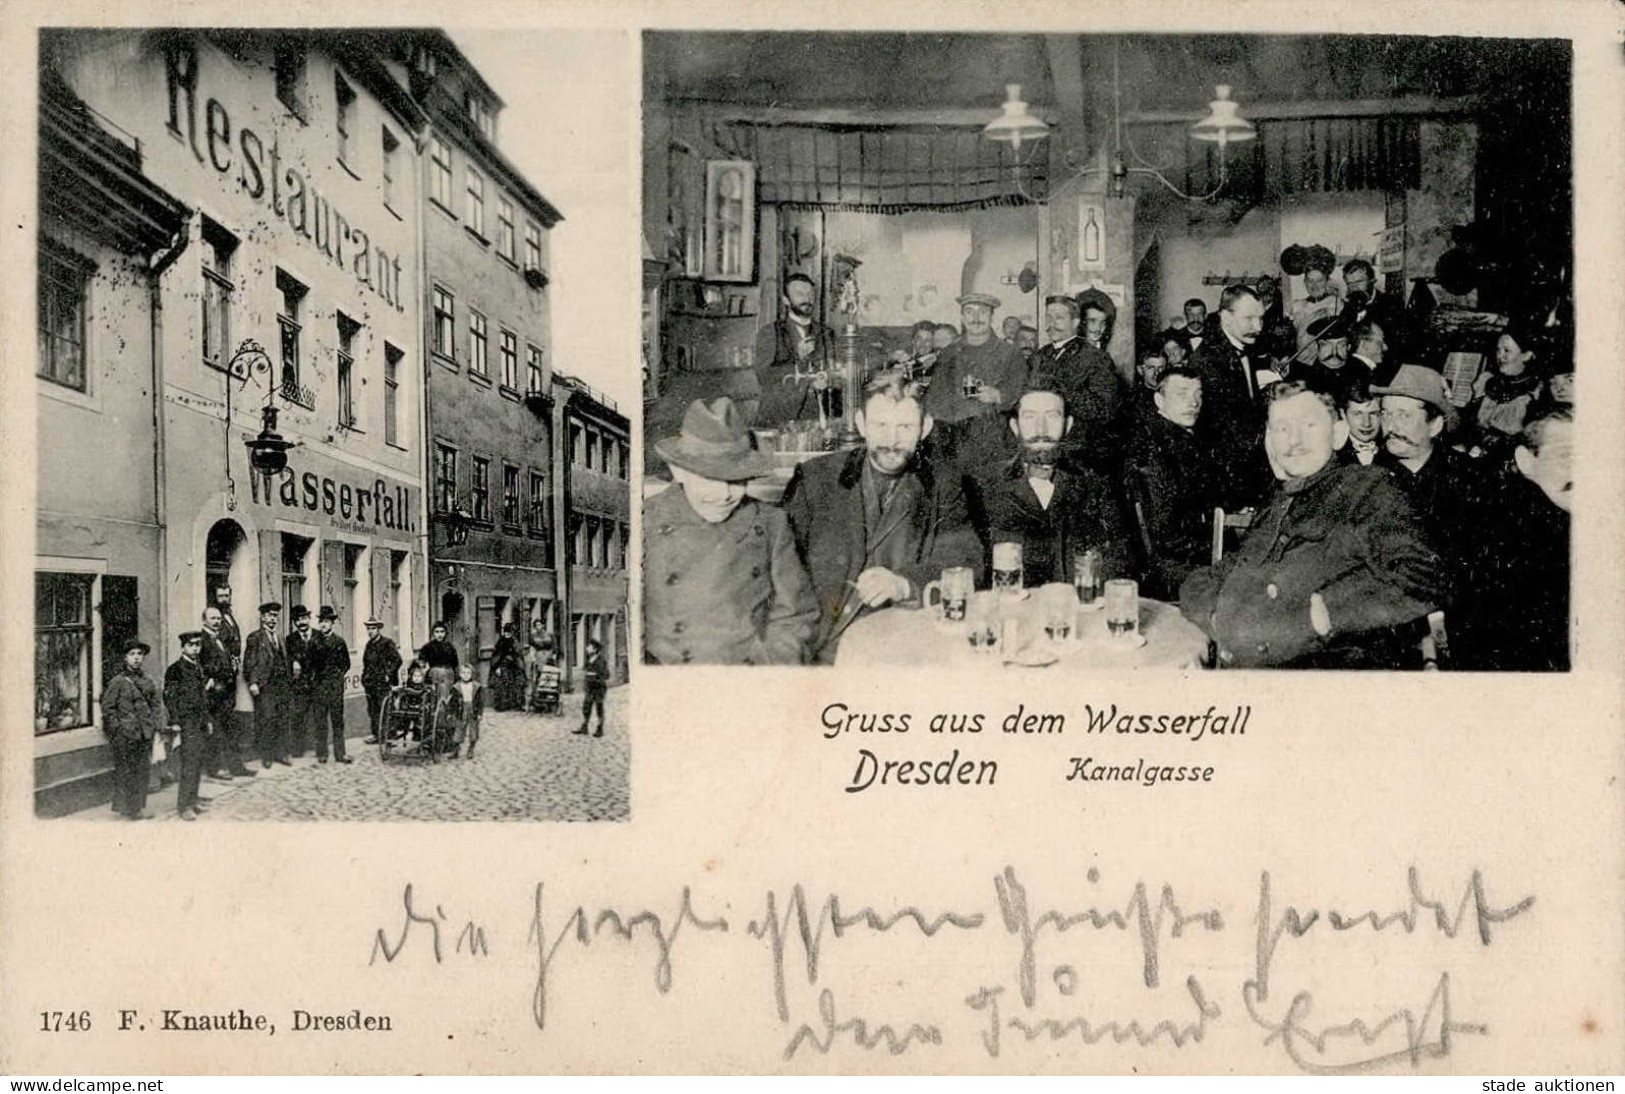 Restaurant
Wasserfall.
Gruss aus dem Wasserfall
Dresden Kanalgasse
die herzlichsten Grüße sendet
dein Freund Ernst
1746 F. Knauthe, Dresden
www.delcampe.net
stade auktionen